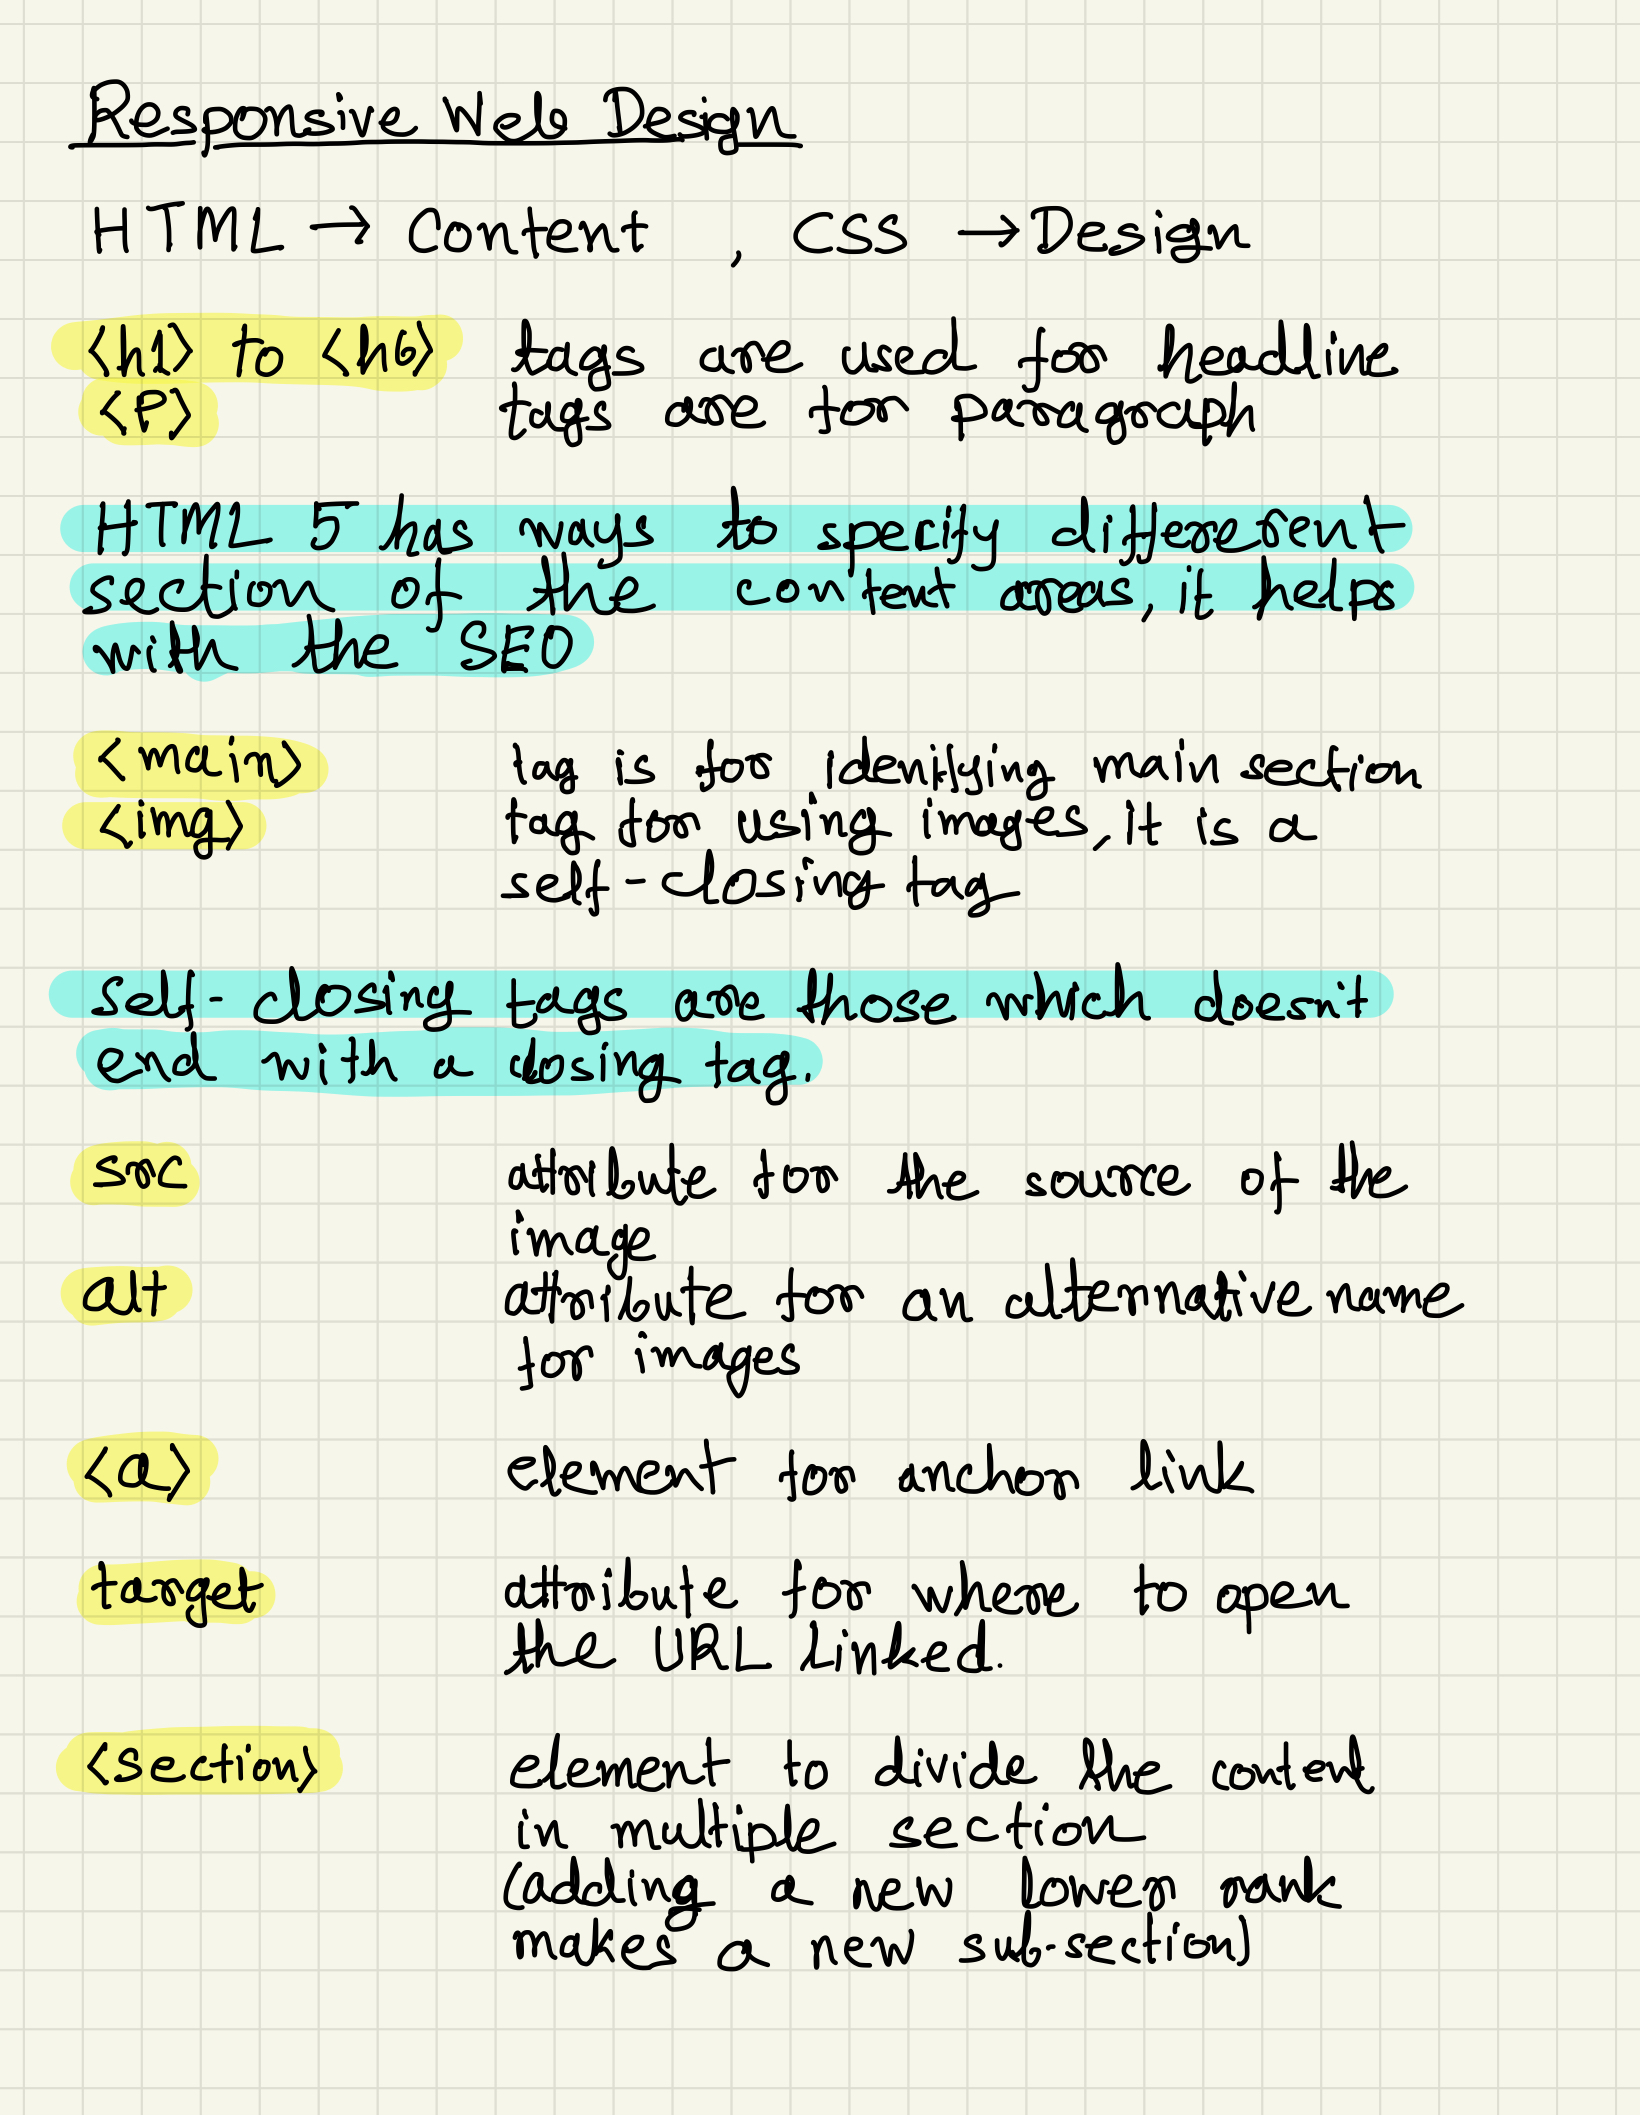 Responsive Web Design
HTML → Content , CSS → Design
<h1> to <h6> tags are used for headline
<P> tags are for paragraph
HTML 5 has ways to specify differerent
section of the content areas, it helps
with the SEO
<main> tag is for idenifying main section
<img> tag for using images, it is a
self-closing tag
self-closing tags are those which doesn't
end with a closing tag.
src attribute for the source of the
image
alt attribute for an alternative name
for images
<a> element for anchor link
target attribute for where to open
the URL linked.
<section> element to divide the content
in multiple section
(adding a new lower rank
makes a new sub-section)